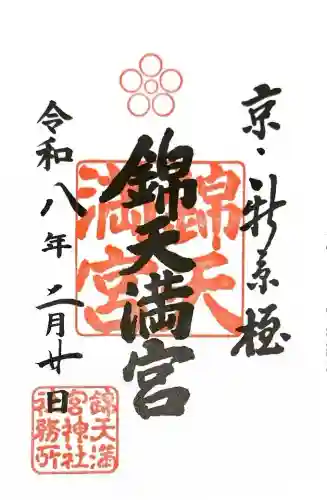 京・新京極
錦天満宮
錦天
満宮
令和八年二月廿日
錦天満
宮神社
神務所